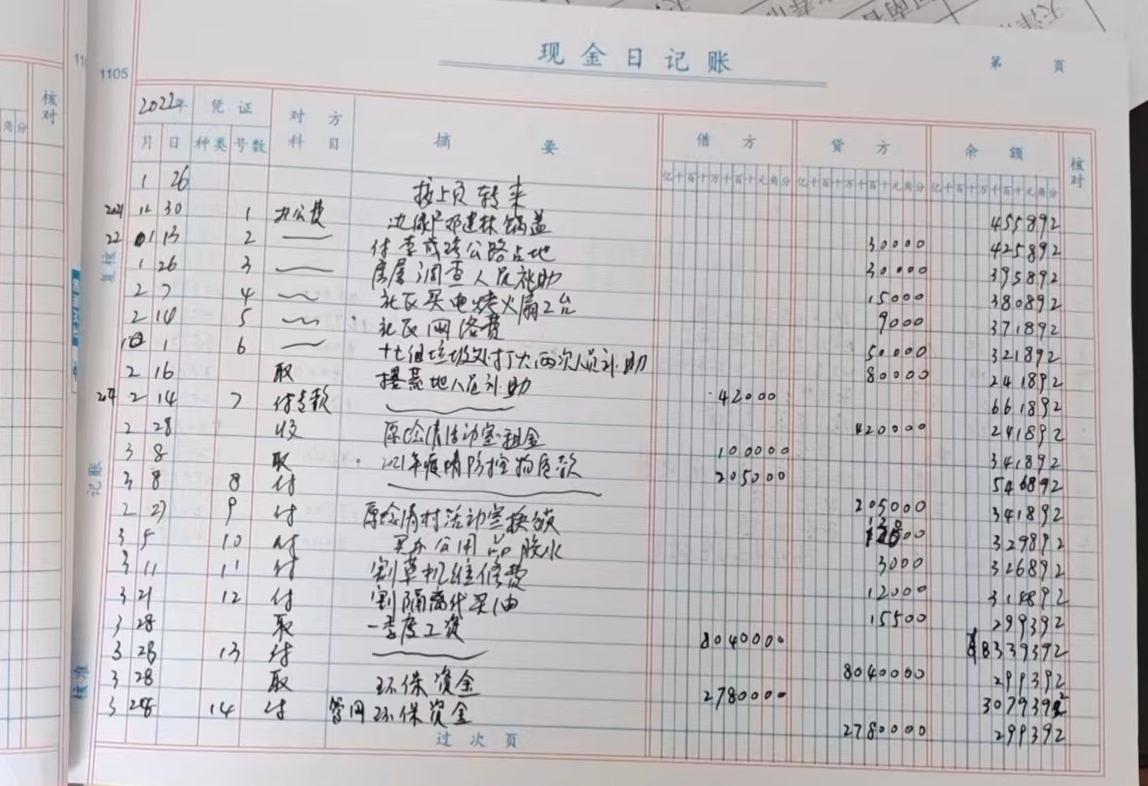 现金日记账
第 页
1105
2022年 凭证 对方科目 摘要 借方 贷方 余额 核对
月 日 种类 号数 亿千百十万千百十元角分 亿千百十万千百十元角分 亿千百十万千百十元角分
1 26 接上页转来 455892
2021 12 30 1 办公费 30000 425892
22 01 13 2 付李 跨公路占地 30000 395892
1 26 3 房屋调查人员补助 15000 380892
2 7 4 社区买电烤火扇2台 9000 371892
2 14 5 社区网络费 50000 321892
1 6 十七组垃圾 两次人员补助 80000 241892
2 16 取 人员补助 42000 661892
2 14 7 付专款 420000 241892
2 28 收 活动室租金 100000 341892
3 8 取 2021年疫情防控物质款 205000 546892
3 8 8 付 205000 341892
2 27 9 付 村活动室换锁 329892
3 5 10 付 买办公用品胶水 3000 326892
3 11 11 付 割草机维修费 12000 314892
3 21 12 付 割隔离 15500 299392
3 28 取 一季度工资 8040000 8339392
3 28 13 付 8040000 299392
3 28 取 环保资金 2780000 3079392
3 28 14 付 管网环保资金 2780000 299392
过次页
复核
记账
核准
核对
角分